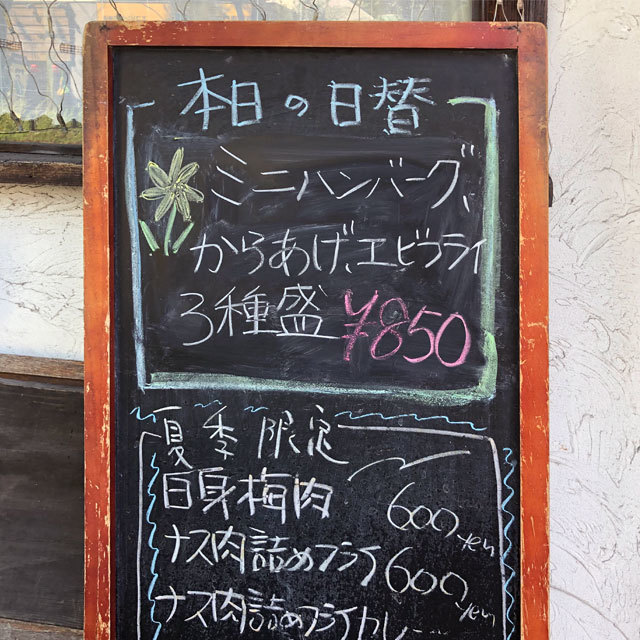 本日の日替
ミニハンバーグ、
からあげ、エビフライ
3種盛 ¥850
夏季限定
白身梅肉 600yen
ナス肉詰めフライ 600yen
ナス肉詰めフライカレー